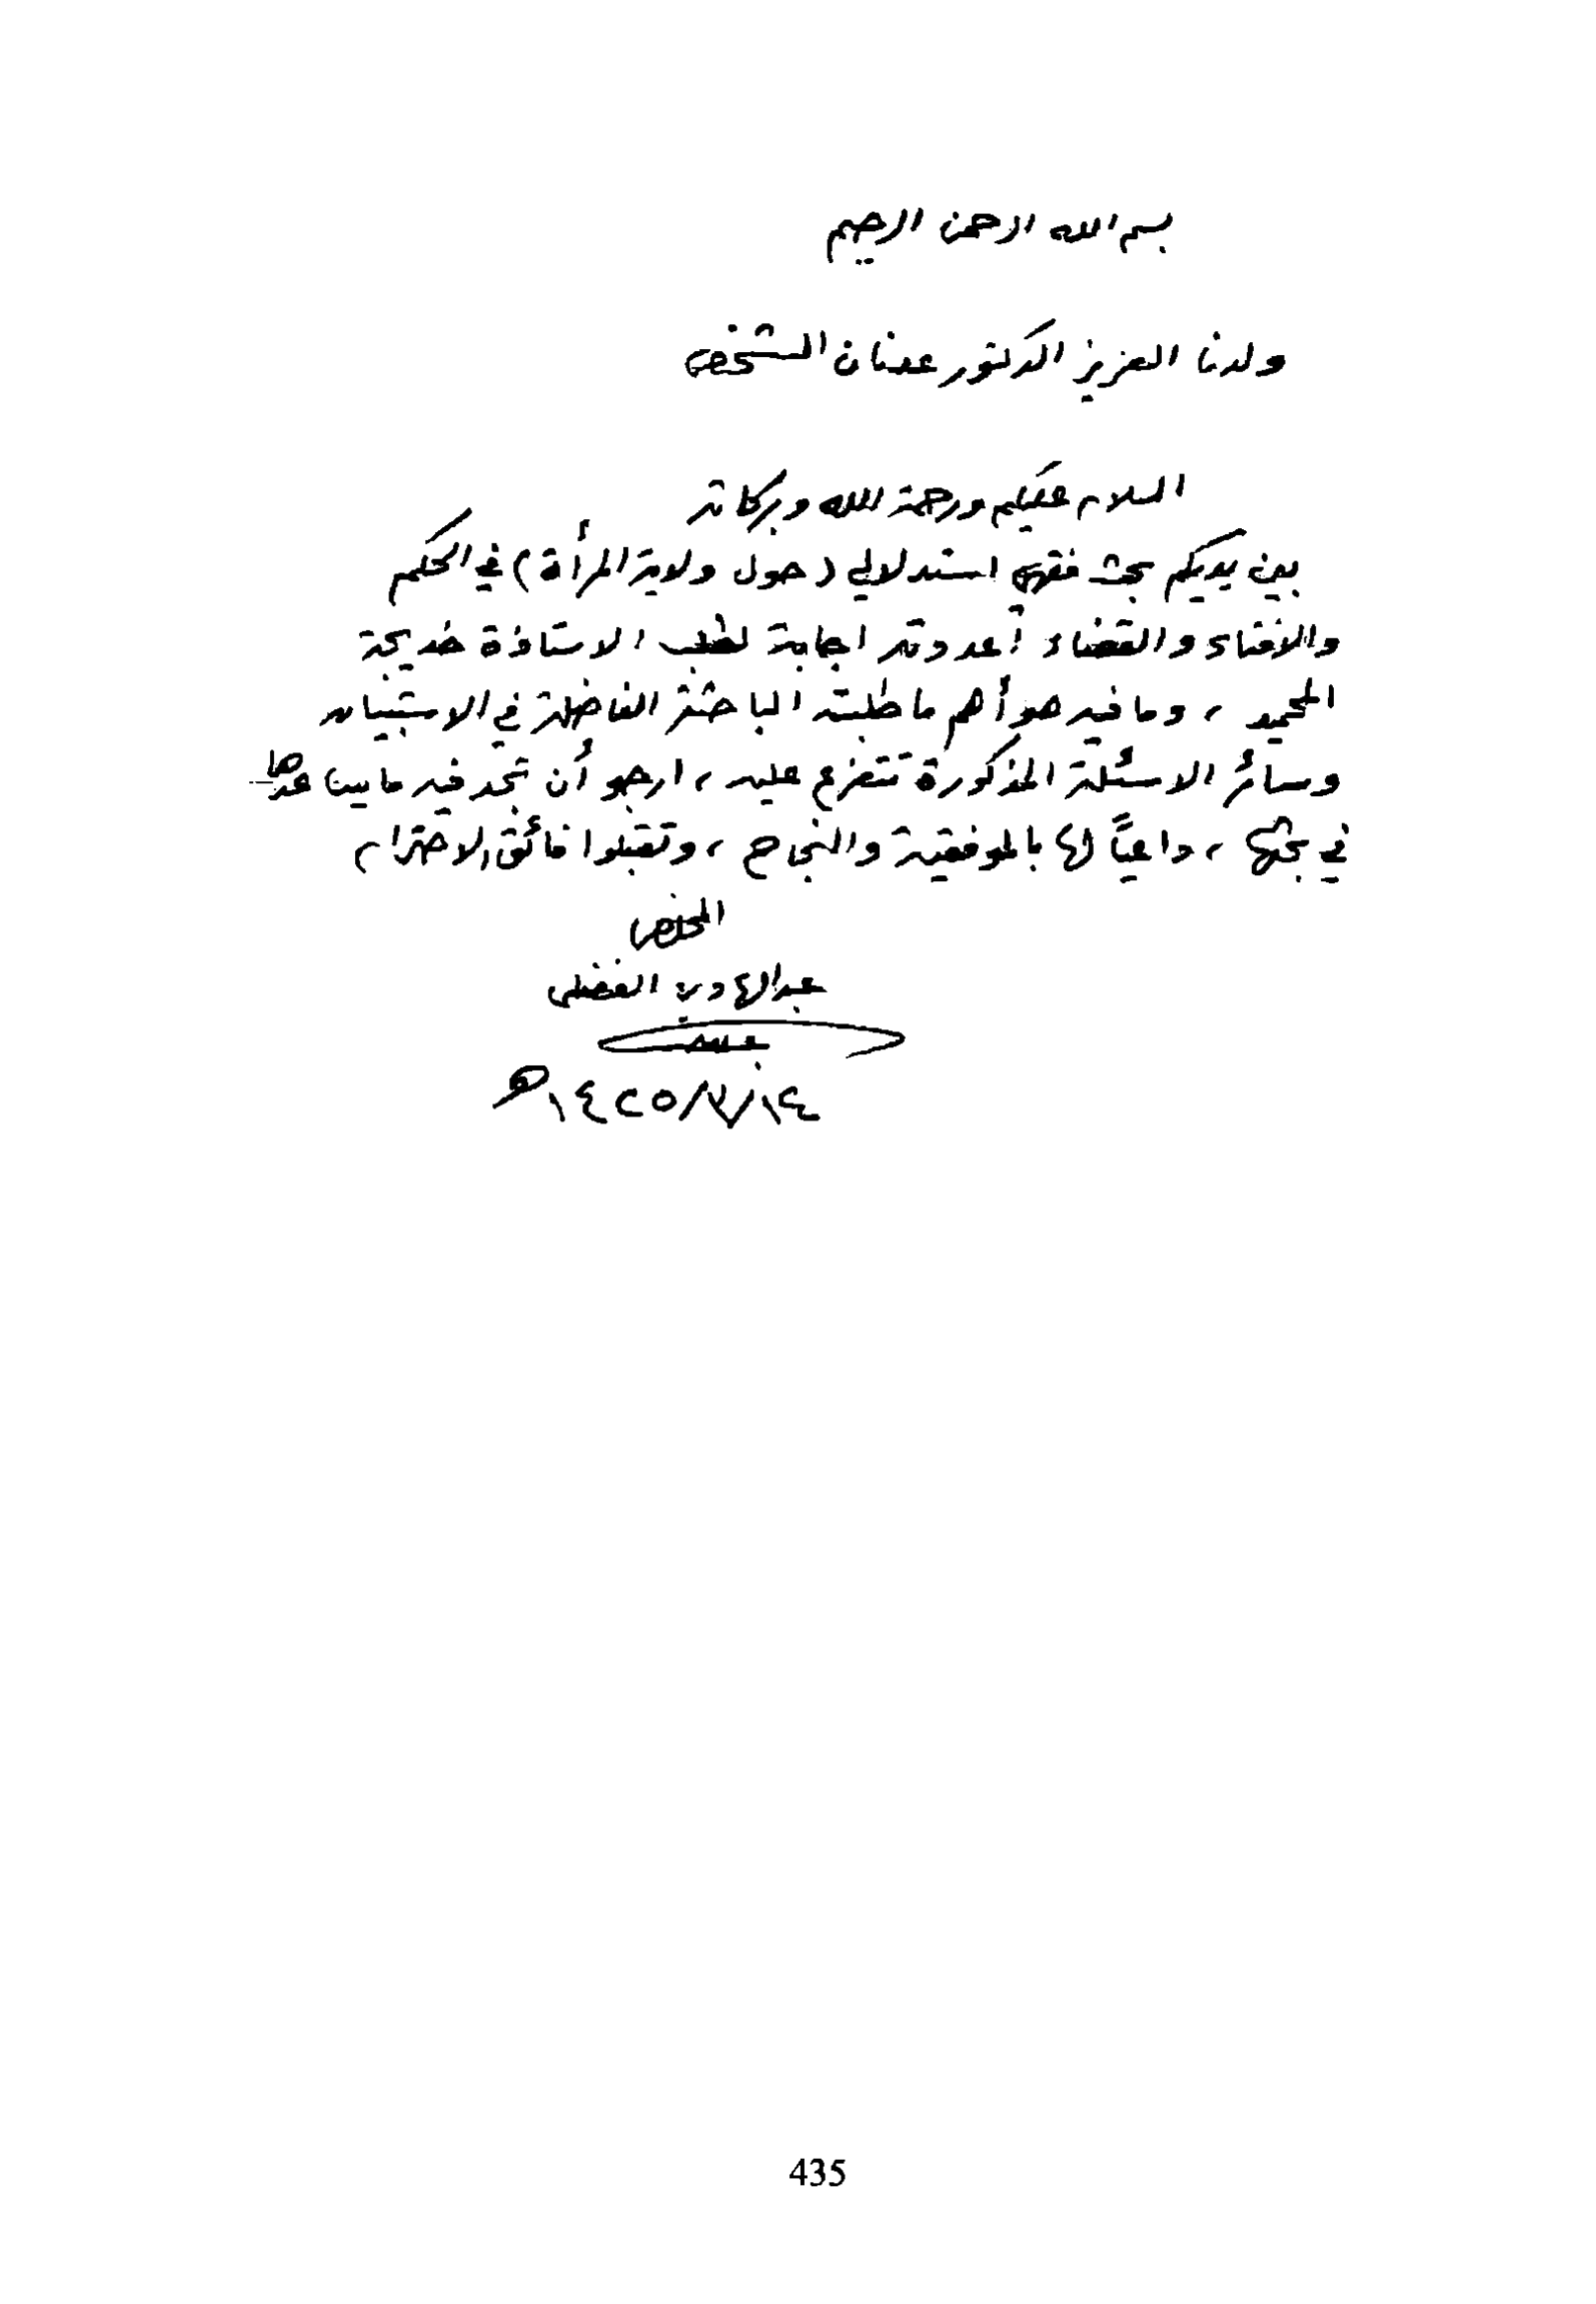 بسم الله الرحمن الرحيم
ولدنا العزيز الدكتور عدنان الشخص
السلام عليكم ورحمة الله وبركاته
بين يديكم بحث فقهي استدلالي (حول ولاية المرأة) في الحكم
والافتاء والقضاء أعددته اجابة لطلب الاستاذة خديجة
المحميد ، وما فيه هو أهم ما طلبته الباحثة الفاضلة في الاستبيان
وسائر الاسئلة المذكورة تتفرع عليه ، ارجو أن تجد فيه ما يساعدها
في بحثها ، داعياً لها بالموفقية والنجاح ، وتقبلوا فائق الاحترام
المخلص
عبدالهادي الفضلي
١٤٢٥/٣/١٤هـ
435